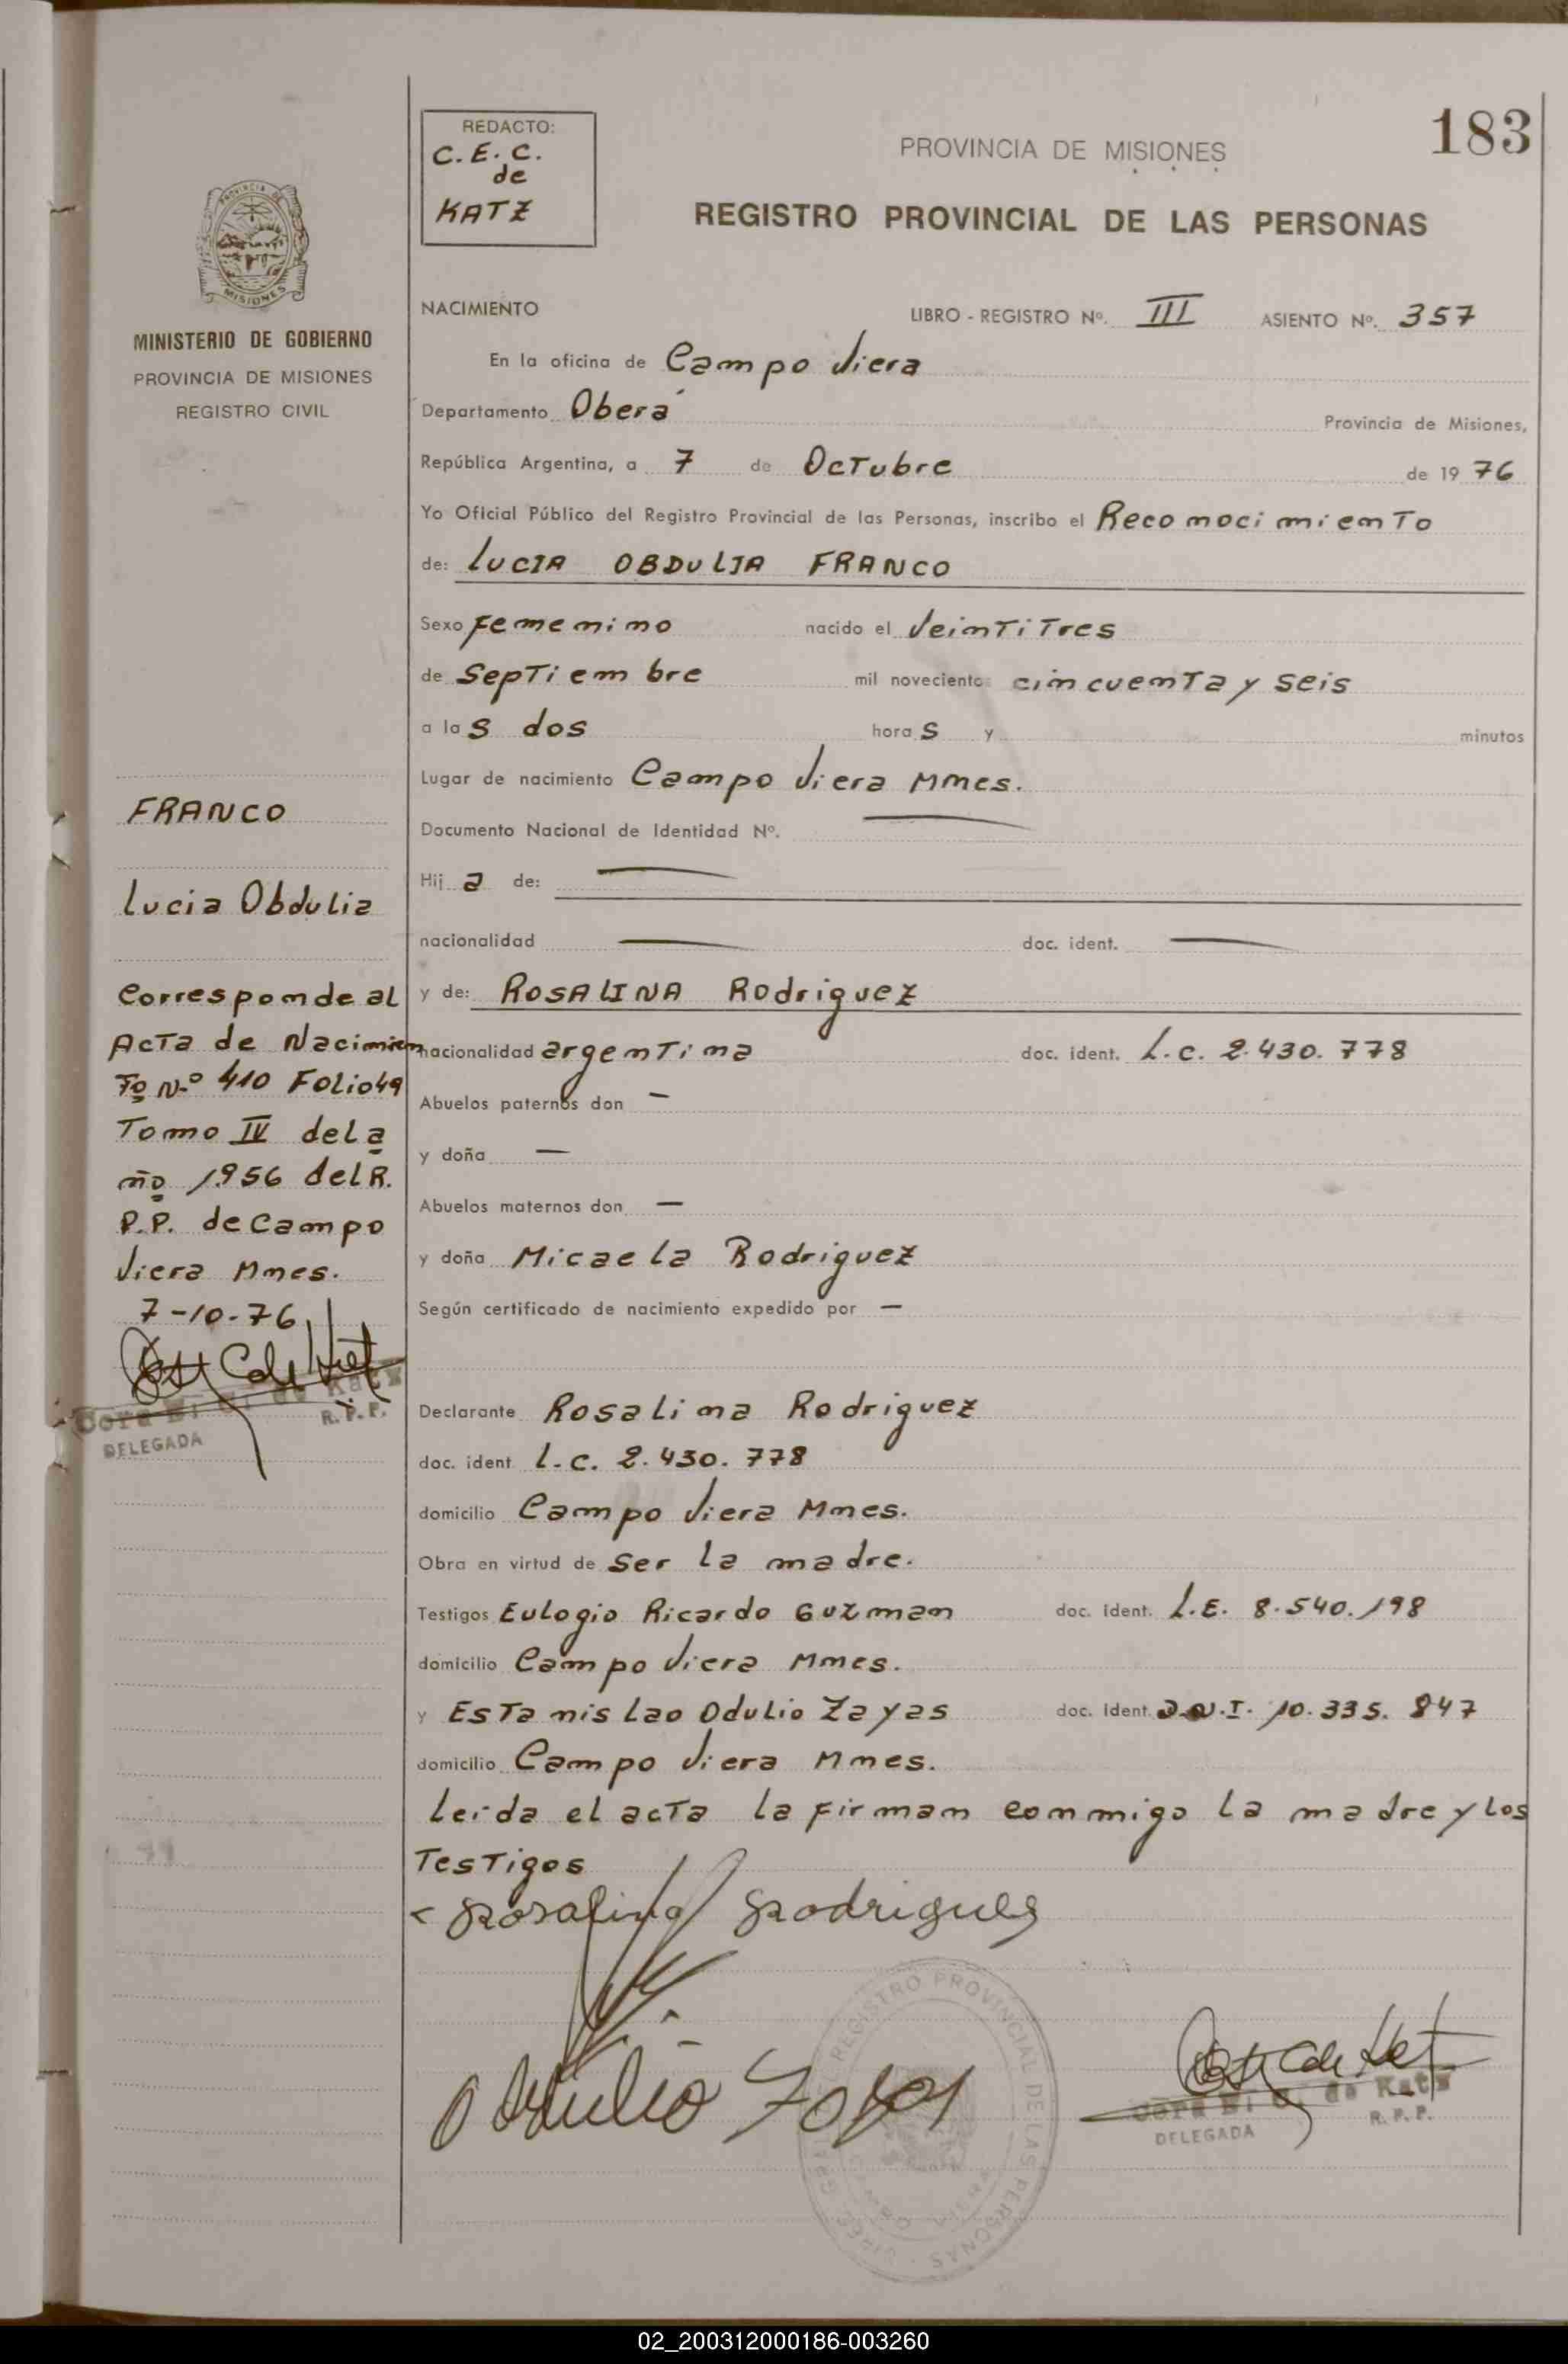 183
REDACTO:
C.E.C.
de
KATZ
PROVINCIA DE MISIONES
REGISTRO PROVINCIAL DE LAS PERSONAS
PROVINCIA DE
MISIONES
MINISTERIO DE GOBIERNO
PROVINCIA DE MISIONES
REGISTRO CIVIL
NACIMIENTO LIBRO - REGISTRO Nº. III ASIENTO Nº. 357
En la oficina de Campo Viera
Departamento Oberá Provincia de Misiones,
República Argentina, a 7 de Octubre de 19 76
Yo Oficial Público del Registro Provincial de las Personas, inscribo el Reconocimiento
de: LUCIA OBDULIA FRANCO
Sexo Femenino nacido el Veintitres
de Septiembre mil noveciento cincuenta y seis
a las dos horas y minutos
Lugar de nacimiento Campo Viera Mnes.
Documento Nacional de Identidad Nº. —
Hija de: —
nacionalidad — doc. ident. —
y de: ROSALINA Rodriguez
nacionalidad argentina doc. ident. L.C. 2.430.778
Abuelos paternos don —
y doña —
Abuelos maternos don —
y doña Micaela Rodriguez
Según certificado de nacimiento expedido por —
Declarante Rosalina Rodriguez
doc. ident L.C. 2.430.778
domicilio Campo Viera Mnes.
Obra en virtud de ser la madre.
Testigos Eulogio Ricardo Guzman doc. ident. L.E. 8.540.198
domicilio Campo Viera Mnes.
y Estanislao Odulio Zayas doc. Ident. D.N.I. 10.335.847
domicilio Campo Viera Mnes.
leida el acta la firman conmigo la madre y los
Testigos
Rosalina Rodrigues
Odulio Zayas
REGISTRO PROVINCIAL DE LAS PERSONAS
CAMPO VIERA
de Katz
DELEGADA R.P.P.
FRANCO
Lucia Obdulia
Corresponde al
Acta de Nacimien
to N.º 410 Folio 49
Tomo IV del a
ño 1956 del R.
P.P. de Campo
Viera Mnes.
7-10-76
de Katz
R.P.P.
DELEGADA
02_200312000186-003260